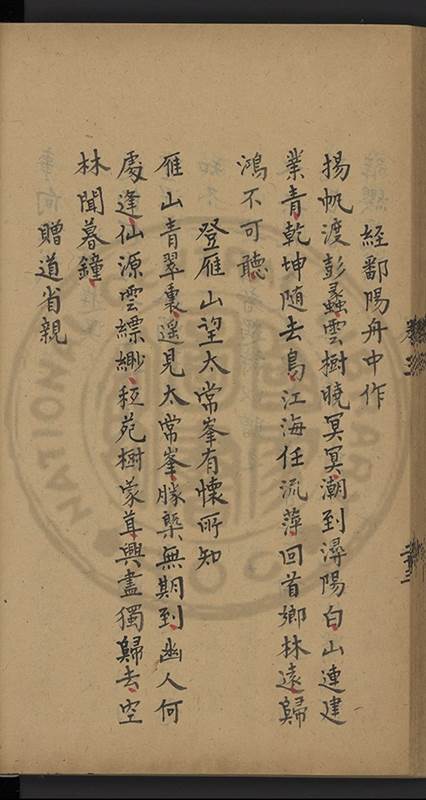 經鄱陽舟中作
揚帆渡彭蠡雲樹曉冥冥潮到潯陽白山連建
業青乾坤随去鳥江海任流萍回首鄉林遠歸
鴻不可聽
登雁山望太常峯有懷所知
雁山青翠裏遥見太常峯勝槩無期到幽人何
處逢仙源雲縹緲秪苑樹蒙茸興盡獨歸去空
林聞暮鐘
贈道省親